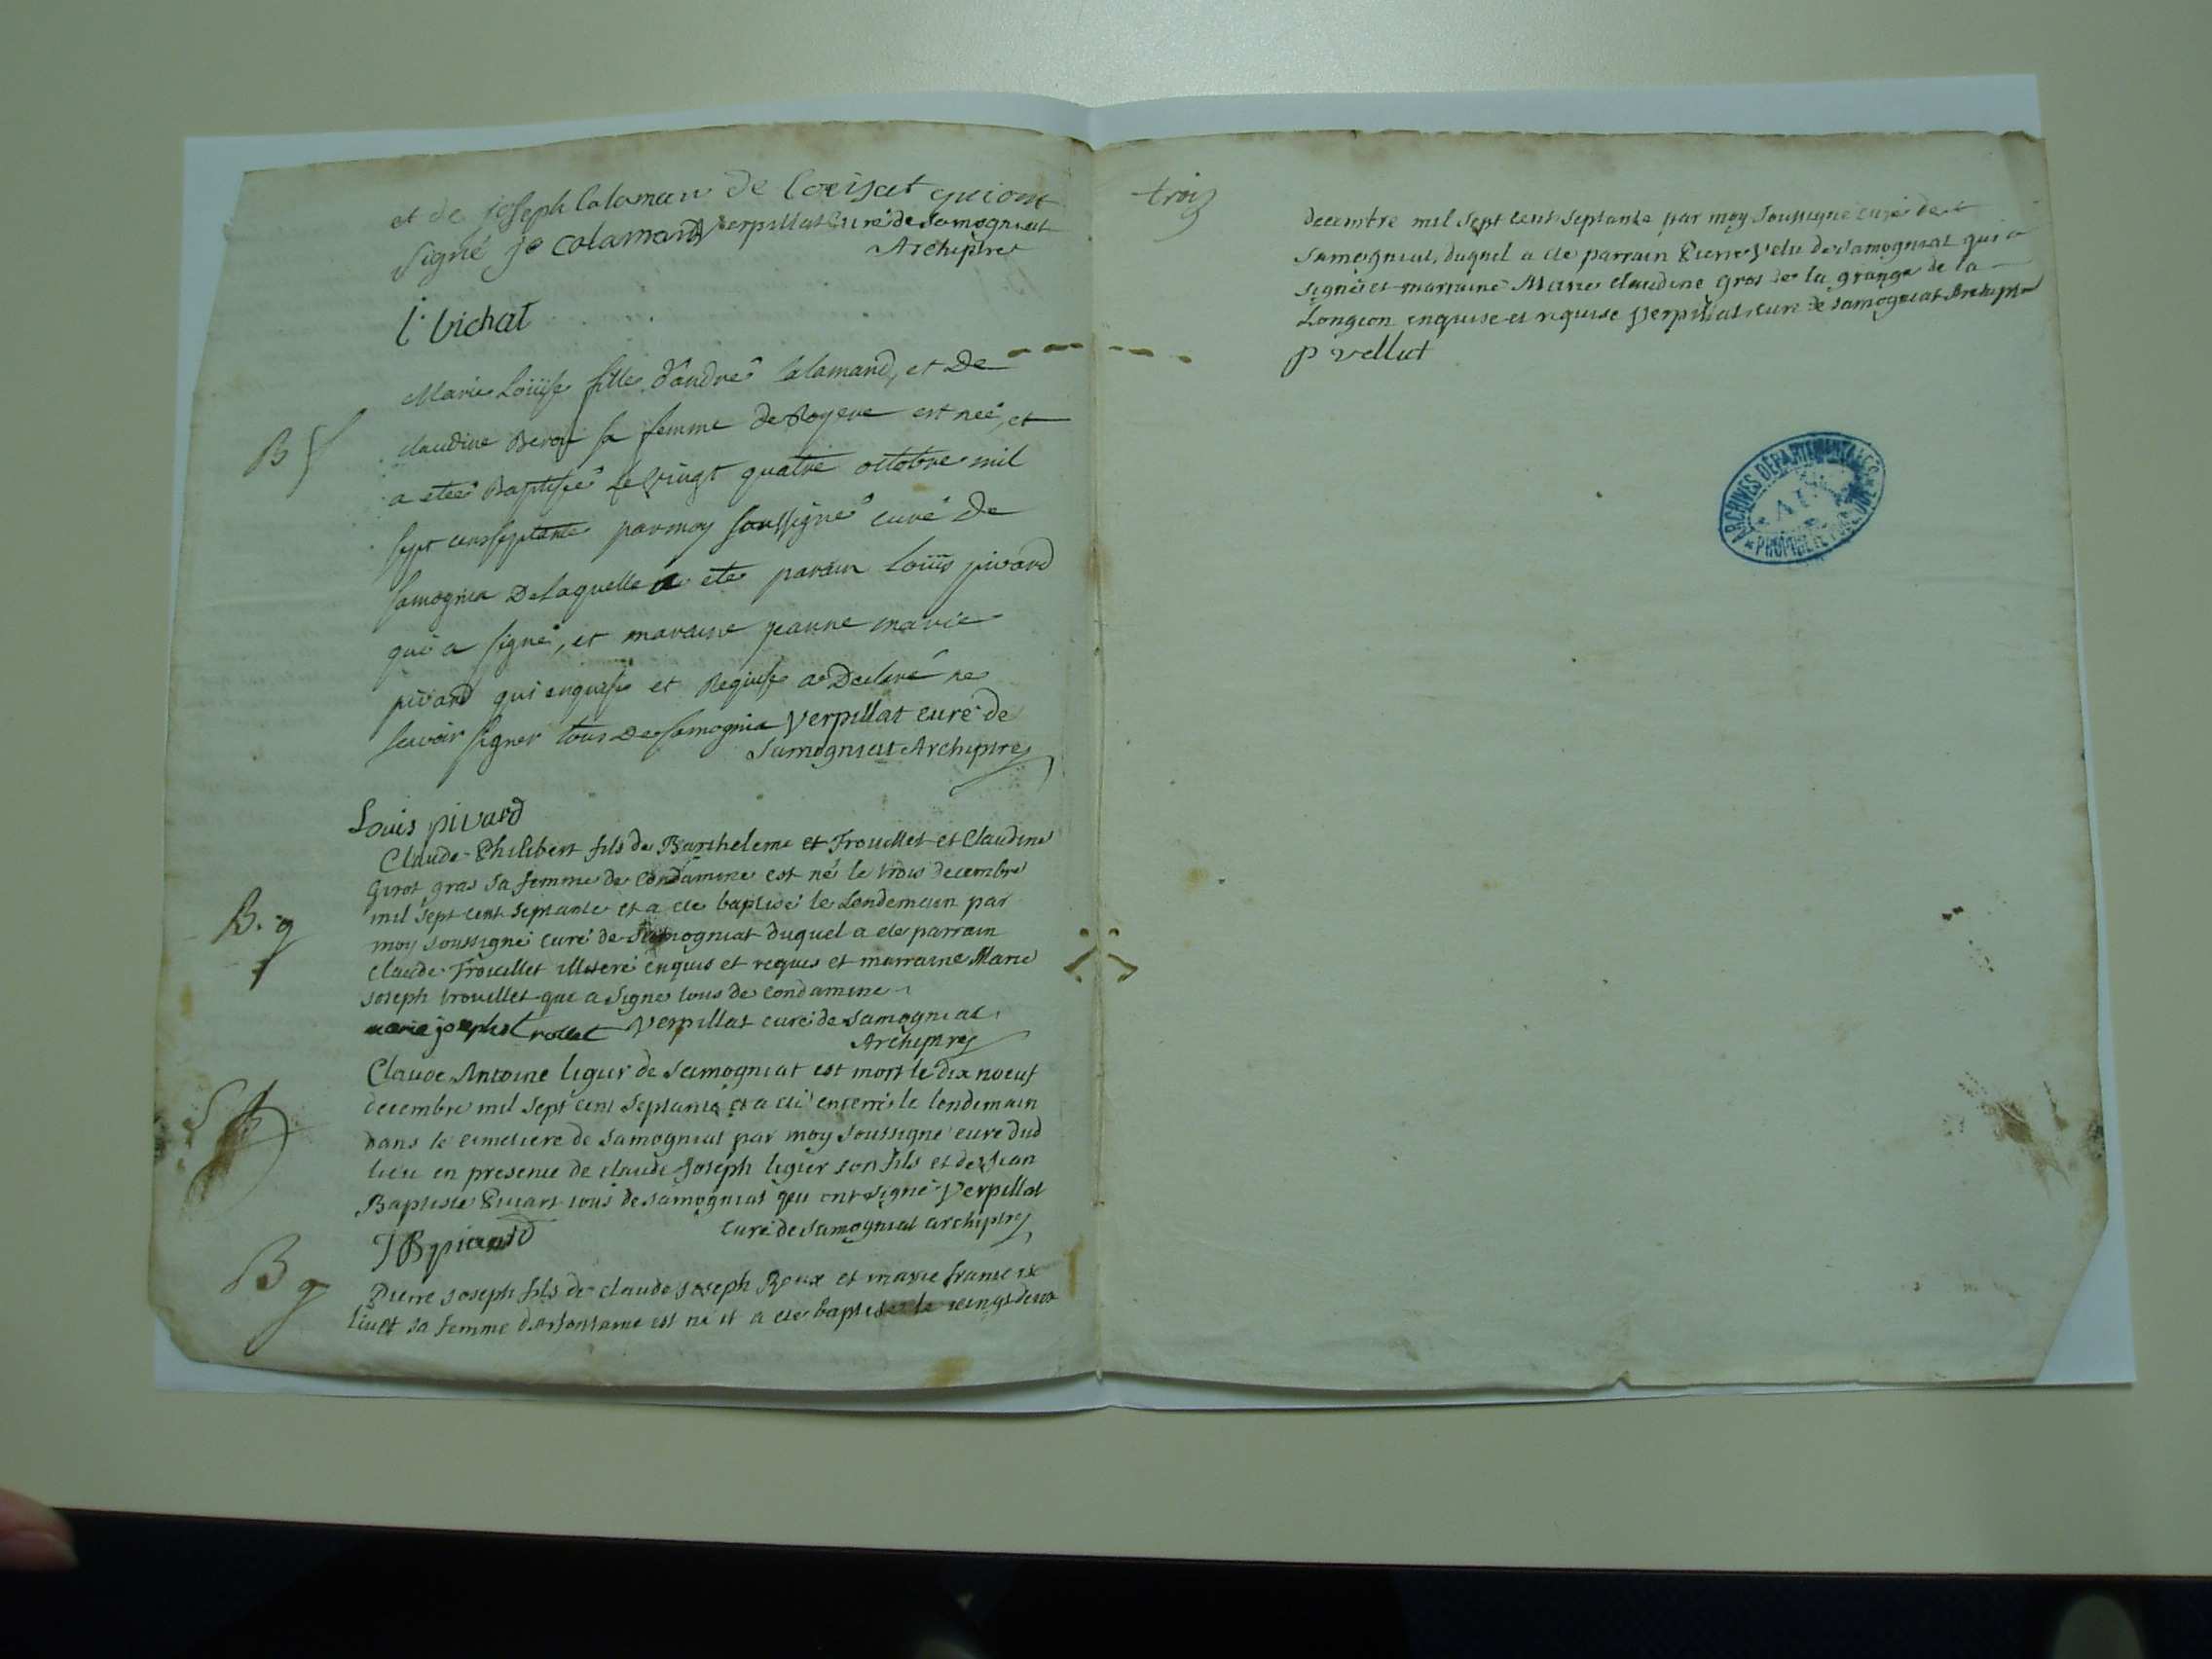 et de joseph Calaman de Coeisat qui ont
signé jo calamand Verpillat Curé de Samogniat
Archiptre
C. Vichat
B f
Marie Loüise fille d'andré Calamand, et De
claudine Beroy sa femme de Rogeve est neé, et
a eteé Baptiseé le vingt quatre octobre mil
sept cens septante par moy soussigné curé De
samognia De laquelle a eté parain Loüis pivard
qui a signé, et maraine jeanne marie
pivard qui enquise et Requise a Declaré ne
scavoir signer tous De samognia Verpillat curé de
Samogniat Archiptre
Louis pivard
B. g
Claude Philibert fils de Barthelemi et Trouillet et Claudine
Girot gras sa femme de Condamine est né le trois decembre
mil sept cent septante et a ete baptisé le Lendemain par
moy soussigné curé de Samogniat duquel a ete parrain
Claude Trouillet illiteré enquis et requis et marraine Marie
joseph trouillet qui a signé tous de condamine
marie joseph trollet Verpillat curé de Samogniat
Archiptre
S
Claude Antoine ligier de Samogniat est mort le dix noeuf
decembre mil sept cent septante et a eté enterré le lendemain
dans le cimetiere de Samogniat par moy soussigné curé dud
lieu en presence de claude joseph ligier son fils et de jean
Baptiste Pivart tous de samogniat qui ont signé Verpillat
curé de Samogniat archiptre
J B pivard
B g
Pierre joseph fils de claude joseph Roux et marie francoise
sa femme est né et a ete baptisé le vingt deux
trois
decembre mil sept cent septante par moy soussigné curé de
Samogniat, duquel a ete parrain Pierre Velu de Samogniat qui a
signé et marraine Marie claudine Gros de la grange de la
Longeon enquise et requise Verpillat curé de samogniat Archiptre
p vellut
ARCHIVES DÉPARTEMENTALES
AIN
PROPRIÉTÉ PUBLIQUE